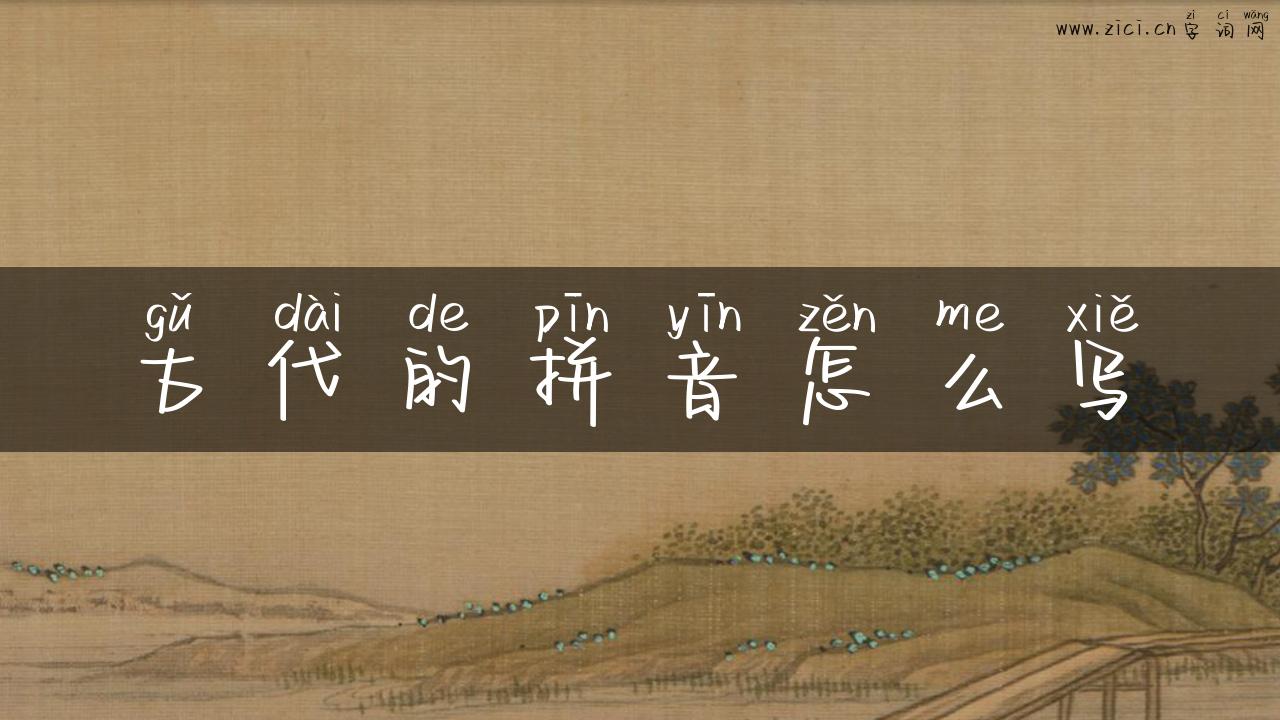 zì cí wǎng
www.zici.cn字词网
gǔ dài de pīn yīn zěn me xiě
古代的拼音怎么写